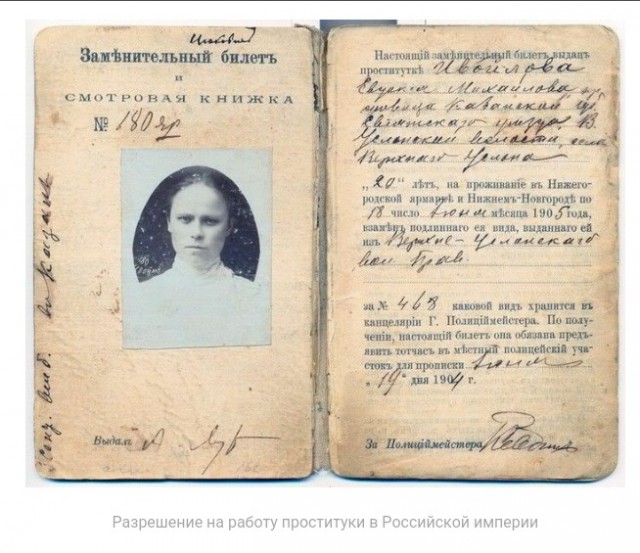 Замѣнительный билетъ
и
СМОТРОВАЯ КНИЖКА
№ 180 яр
Выдалъ
Настоящій замѣнительный билетъ выданъ
проституткѣ
Евгенія Михайлова
Казанской губ.
уѣзда В.
Услонской волости села
Верхняго Услона
„20“ лѣтъ, на проживаніе въ Нижего-
родской ярмаркѣ и Нижнемъ-Новгородѣ по
18 число Іюня мѣсяца 1905 года,
взамѣнъ подлиннаго ея вида, выданнаго ей
изъ Верхне-Услонскаго
вол. Прав.
за № 468 каковой видъ хранится въ
канцеляріи Г. Полиціймейстера. По полу-
ченіи, настоящій билетъ она обязана предъ-
явить тотчасъ въ мѣстный полицейскій уча-
стокъ для прописки Іюня
„19“ дня 1904 г.
За Полиціймейстера
Разрешение на работу проституки в Российской империи